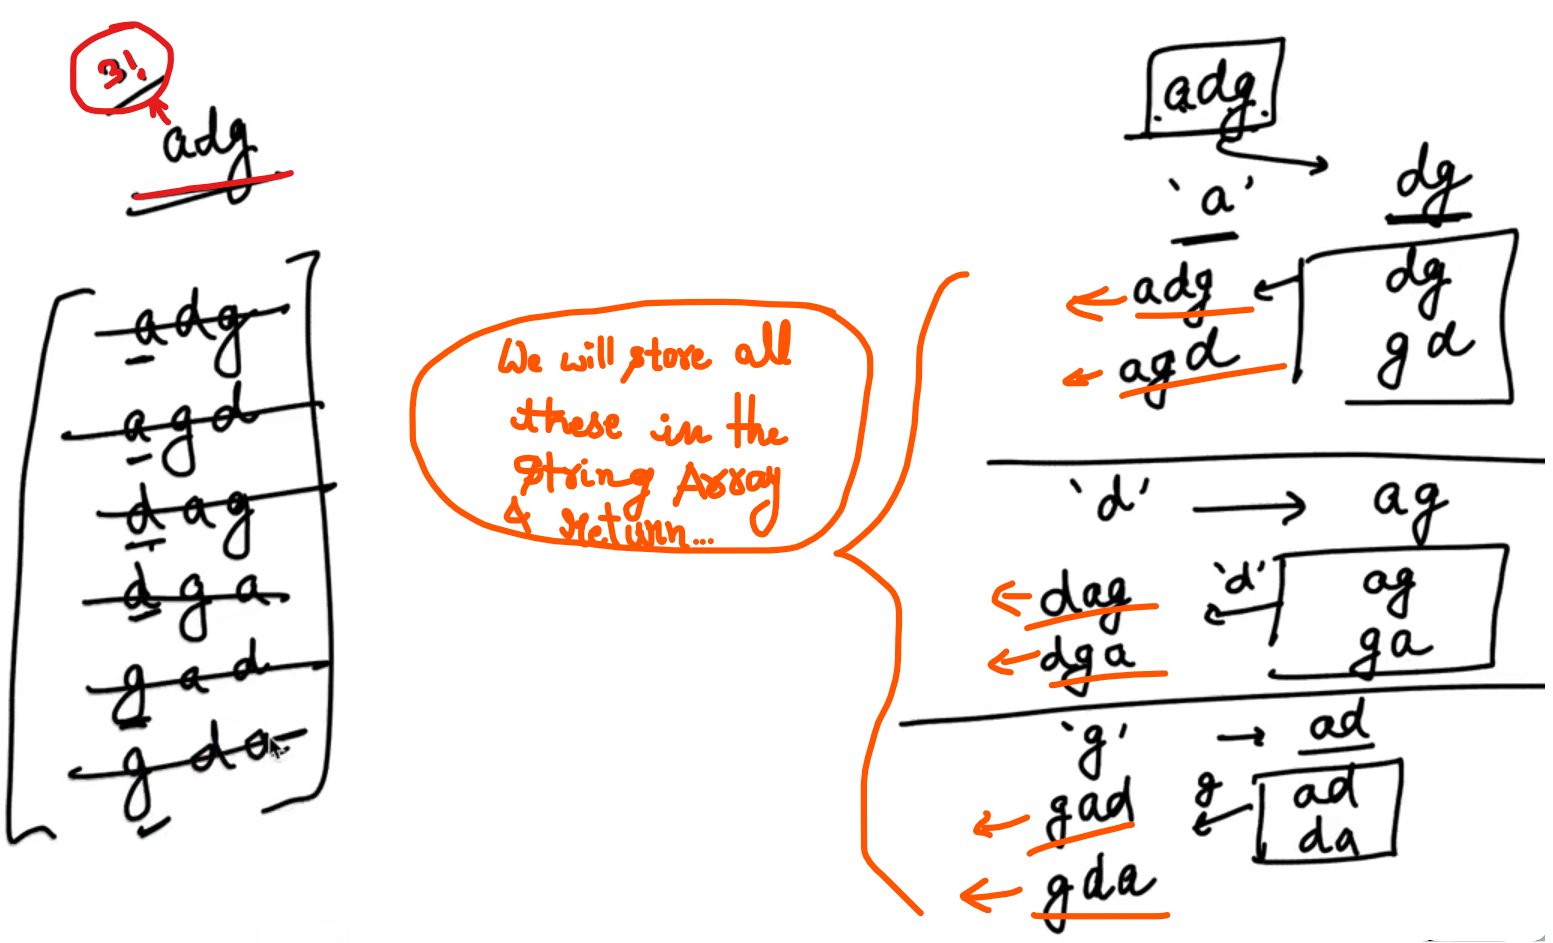 3!
adg
adg
agd
dag
dga
gad
gda
We will store all
these in the
String Array
& return...
adg
'a'
dg
adg
agd
dg
gd
'd' → ag
dag
dga
'd'
ag
ga
'g' → ad
gad
gda
g
ad
da